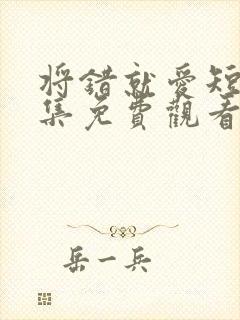 将错就爱短
集免費觀看
岳一兵